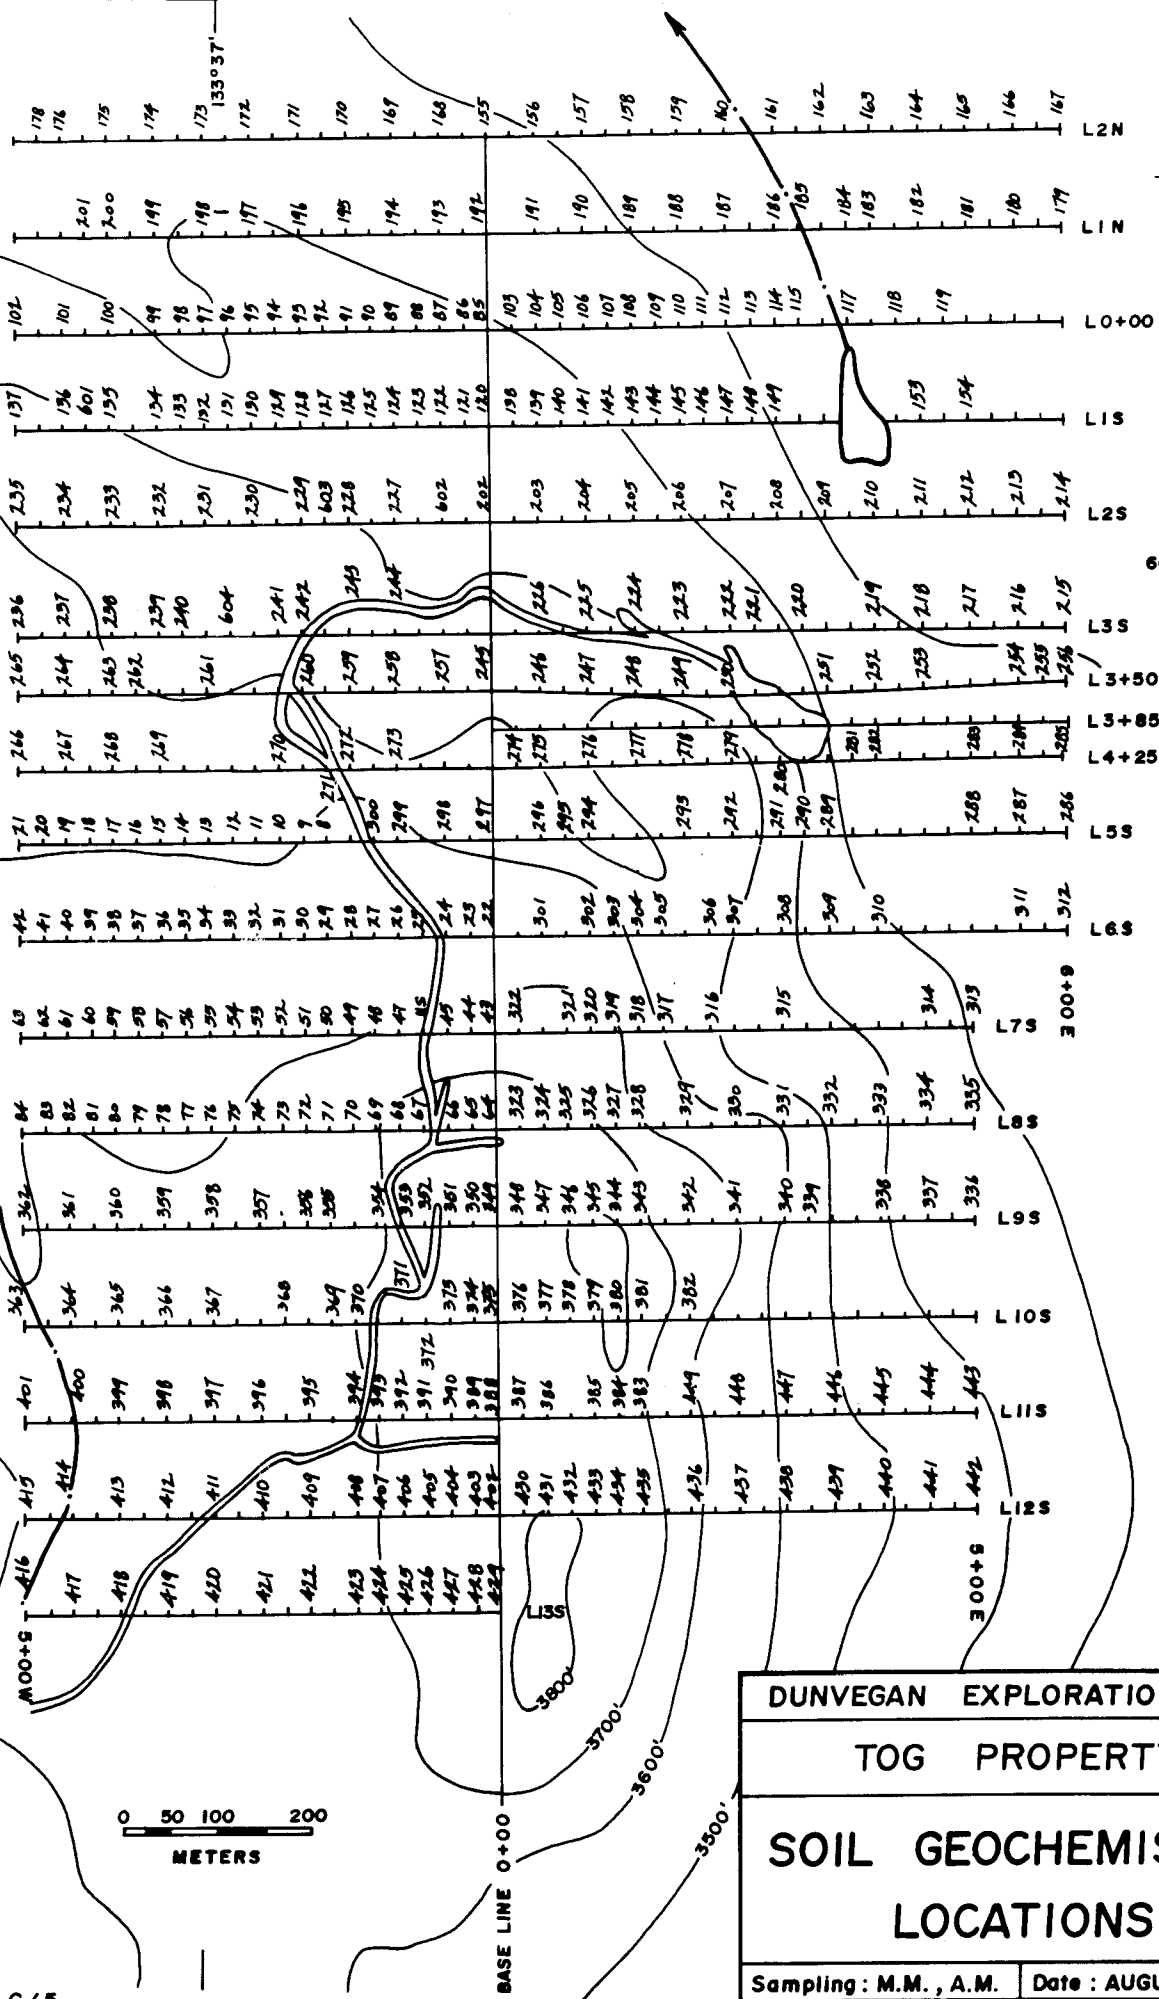 133°37'
178 176 175 174 173 172 171 170 169 168 155 156 157 158 159 160 161 162 163 164 165 166 167 L2N
201 200 199 198 197 196 195 194 193 192 191 190 189 188 187 186 185 184 183 182 181 180 179 L1N
102 101 100 99 98 97 96 95 94 93 92 91 90 89 88 87 86 85 103 104 105 106 107 108 109 110 111 112 113 114 115 117 118 119 L0+00
137 136 601 135 134 133 132 131 130 129 128 127 126 125 124 123 122 121 120 138 139 140 141 142 143 144 145 146 147 148 149 153 154 L1S
235 234 233 232 231 230 229 603 228 227 602 202 203 204 205 206 207 208 209 210 211 212 213 214 L2S
236 237 238 239 240 604 241 242 243 244 226 225 224 223 222 221 220 219 218 217 216 215 L3S
265 264 263 262 261 260 259 258 257 245 246 247 248 249 250 251 252 253 254 255 256 L3+50
L3+85
266 267 268 269 270 272 273 274 275 276 277 278 279 280 281 282 283 284 285 L4+25
271
21 20 19 18 17 16 15 14 13 12 11 10 9 8 300 299 298 297 296 295 294 293 292 291 290 289 288 287 286 L5S
42 41 40 39 38 37 36 35 34 33 32 31 30 29 28 27 26 25 24 23 22 301 302 303 304 305 306 307 308 309 310 311 312 L6S
63 62 61 60 59 58 57 56 55 54 53 52 51 50 49 48 47 45 44 43 322 321 320 319 318 317 316 315 314 313 L7S
6+00E
84 83 82 81 80 79 78 77 76 75 74 73 72 71 70 69 68 67 66 65 64 323 324 325 326 327 328 329 330 331 332 333 334 335 L8S
362 361 360 359 358 357 356 355 354 353 352 351 350 349 348 347 346 345 344 343 342 341 340 339 338 337 336 L9S
363 364 365 366 367 368 369 370 371 373 374 375 376 377 378 379 380 381 382 L10S
372
401 400 399 398 397 396 395 394 393 392 391 390 389 388 387 386 385 384 383 449 448 447 446 445 444 443 L11S
415 414 413 412 411 410 409 408 407 406 405 404 403 402 430 431 432 433 434 435 436 437 438 439 440 441 442 L12S
416 417 418 419 420 421 422 423 424 425 426 427 428 429 L13S
5+00E
5+00W
3800'
3700'
3600'
3500'
0 50 100 200
METERS
BASE LINE 0+00
DUNVEGAN EXPLORATIO
TOG PROPERT
SOIL GEOCHEMIS
LOCATIONS
Sampling : M.M. , A.M. Date : AUGU